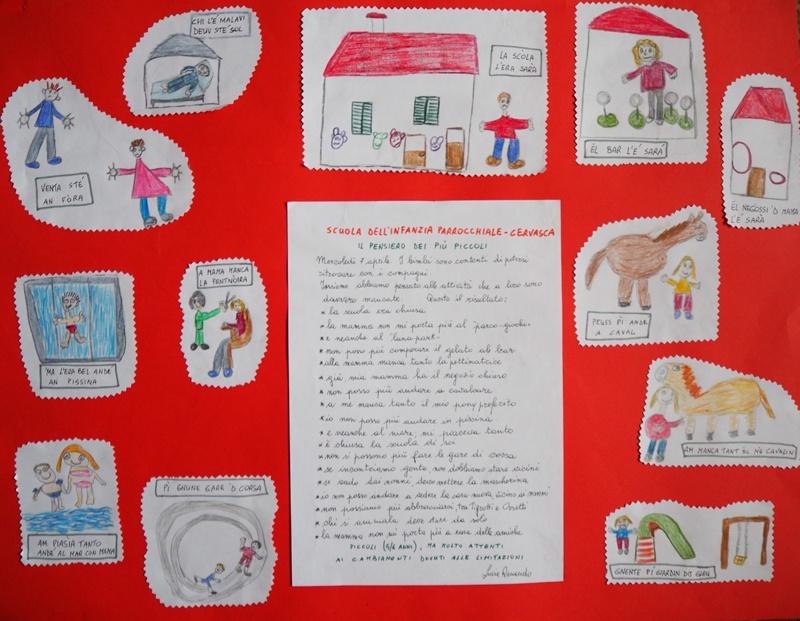 CHI L'É MALAVI
DEUV STÉ SOL
LA SCÒLA
L'ERA SARÀ
ËL BAR L'É SARÀ
ËL NEGOSSI 'D MAMA
L'É SARÀ
VENTA STÉ
AN FÒRA
SCUOLA DELL'INFANZIA PARROCCHIALE - CERVASCA
IL PENSIERO DEI PIÙ PICCOLI
Mercoledì 7 aprile. I bimbi sono contenti di potersi
ritrovare con i compagni.
Insieme abbiamo pensato alle attività che a loro sono
davvero mancate. Questo il risultato:
* la scuola era chiusa
* la mamma non mi porta più al "parco-giochi"
* e neanche al "luna-park"
* non posso più comperare il gelato al bar
* alla mamma manca tanto la pettinatrice
* già, mia mamma ha il negozio chiuso
* non posso più andare a cavalcare
* a me manca tanto il mio pony preferito
* io non posso più andare in piscina
* e neanche al mare; mi piaceva tanto
* è chiusa la scuola di sci
* non si possono più fare le gare di corsa
* se incontriamo gente, non dobbiamo stare vicini
* se vado dai nonni, devo mettere la mascherina
* io non posso andare a vedere la casa nuova, vicino ai nonni
* non possiamo più abbracciarci, tra Tigrotti e Orsetti
* chi si ammala deve stare da solo
* la mamma non mi porta più a casa delle amiche
PICCOLI (5/6 ANNI), MA MOLTO ATTENTI
AI CAMBIAMENTI DOVUTI ALLE LIMITAZIONI
A MAMA MANCA
LA PENTNÒIRA
'MA L'ERA BEL ANDÉ
AN PISSINA
PEUSS PÌ ANDÉ
A CAVAL
AM MANCA TANT ËL MÈ CAVALIN
AM PIASIA TANTO
ANDÉ AL MAR CON MAMA
PÌ GNUNE GARE 'D CORSA
GNENTE PÌ GIARDIN DIJ GIEU